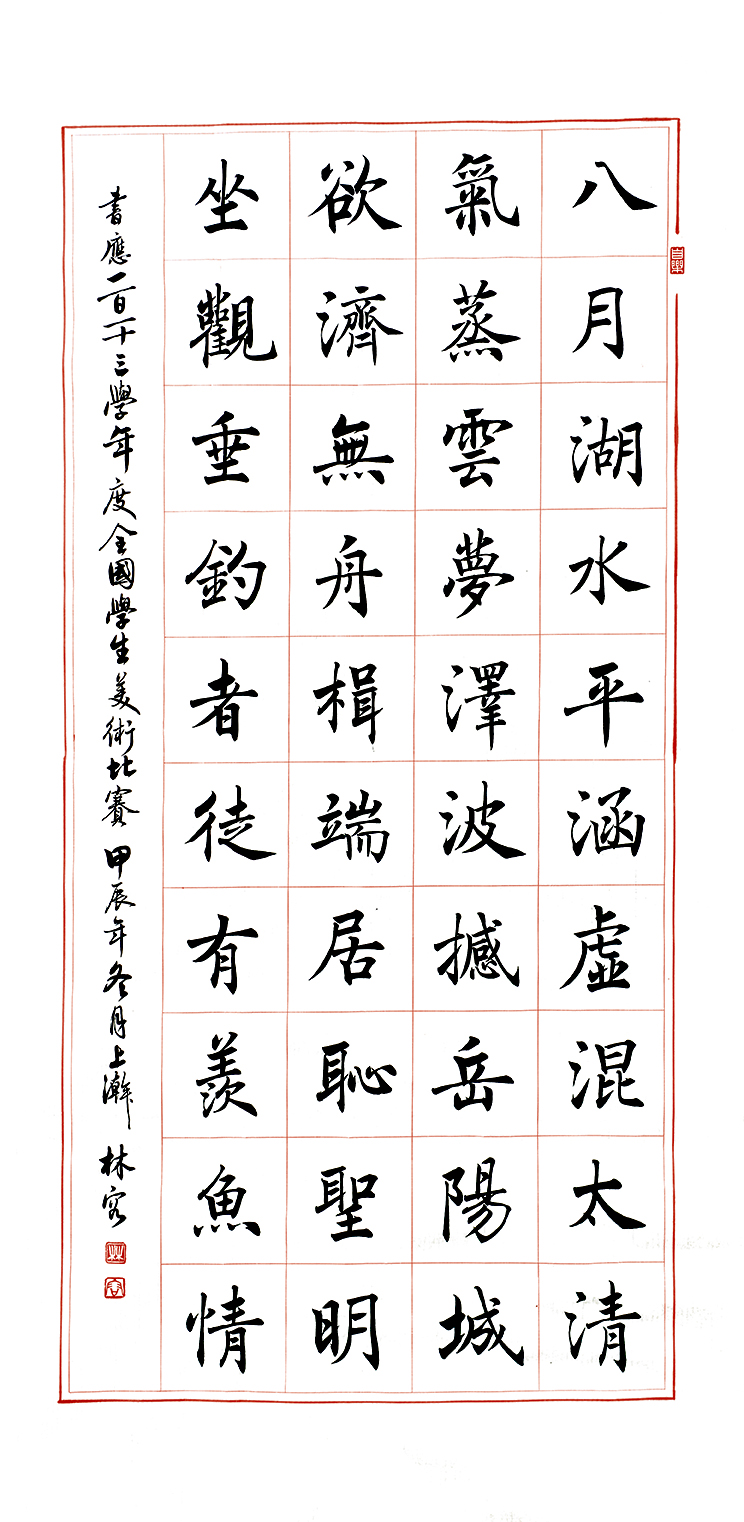 八月湖水平涵虛混太清
氣蒸雲夢澤波撼岳陽城
欲濟無舟楫端居恥聖明
坐觀垂釣者徒有羨魚情
書應一百一十三學年度全國學生美術比賽 甲辰年冬月上澣 林容